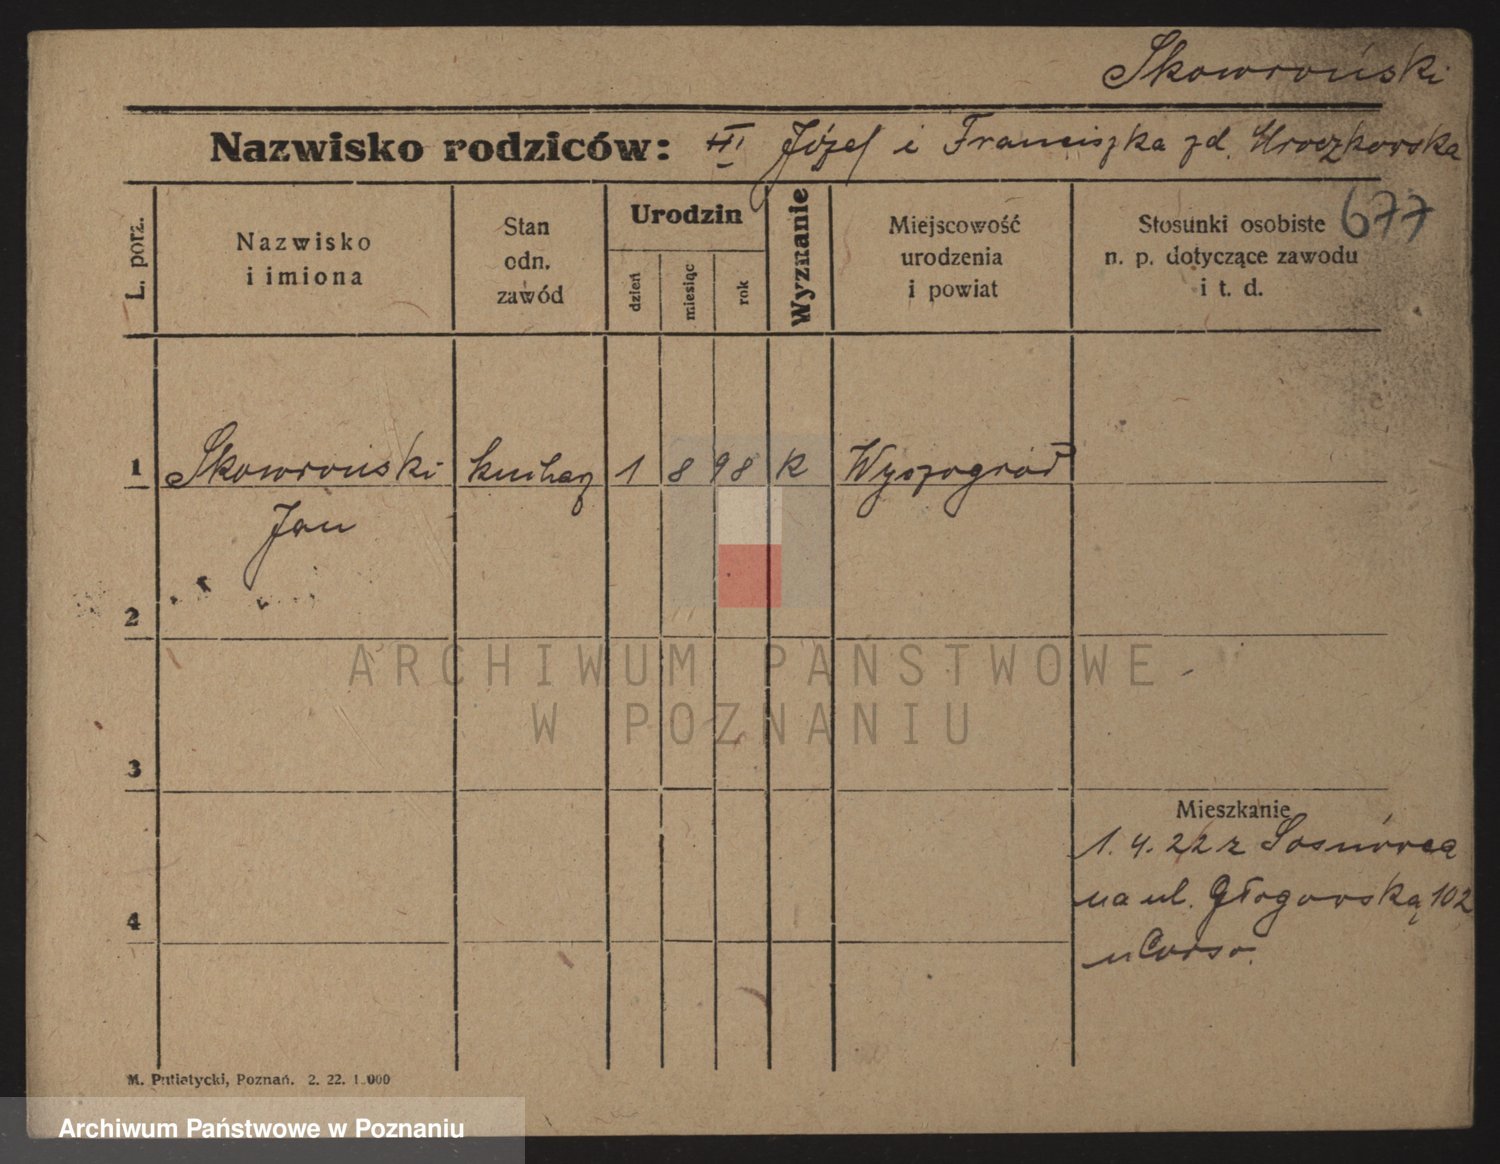 Skowroński
Nazwisko rodziców: III Józef i Franciszka zd. Mroczkowska
677
L. porz.
Nazwisko
i imiona
Stan
odn.
zawód
Urodzin
dzień
miesiąc
rok
Wyznanie
Miejscowość
urodzenia
i powiat
Stosunki osobiste
n. p. dotyczące zawodu
i t. d.
1 Skowroński kucharz 1 8 98 k Wyszogród
Jan
2
ARCHIWUM PAŃSTWOWE
W POZNANIU
3
Mieszkanie
1.4.22 z Sosnówca
na ul. Głogowską 102
u Corso.
4
M. Putiatycki, Poznań. 2. 22. 1.000
Archiwum Państwowe w Poznaniu